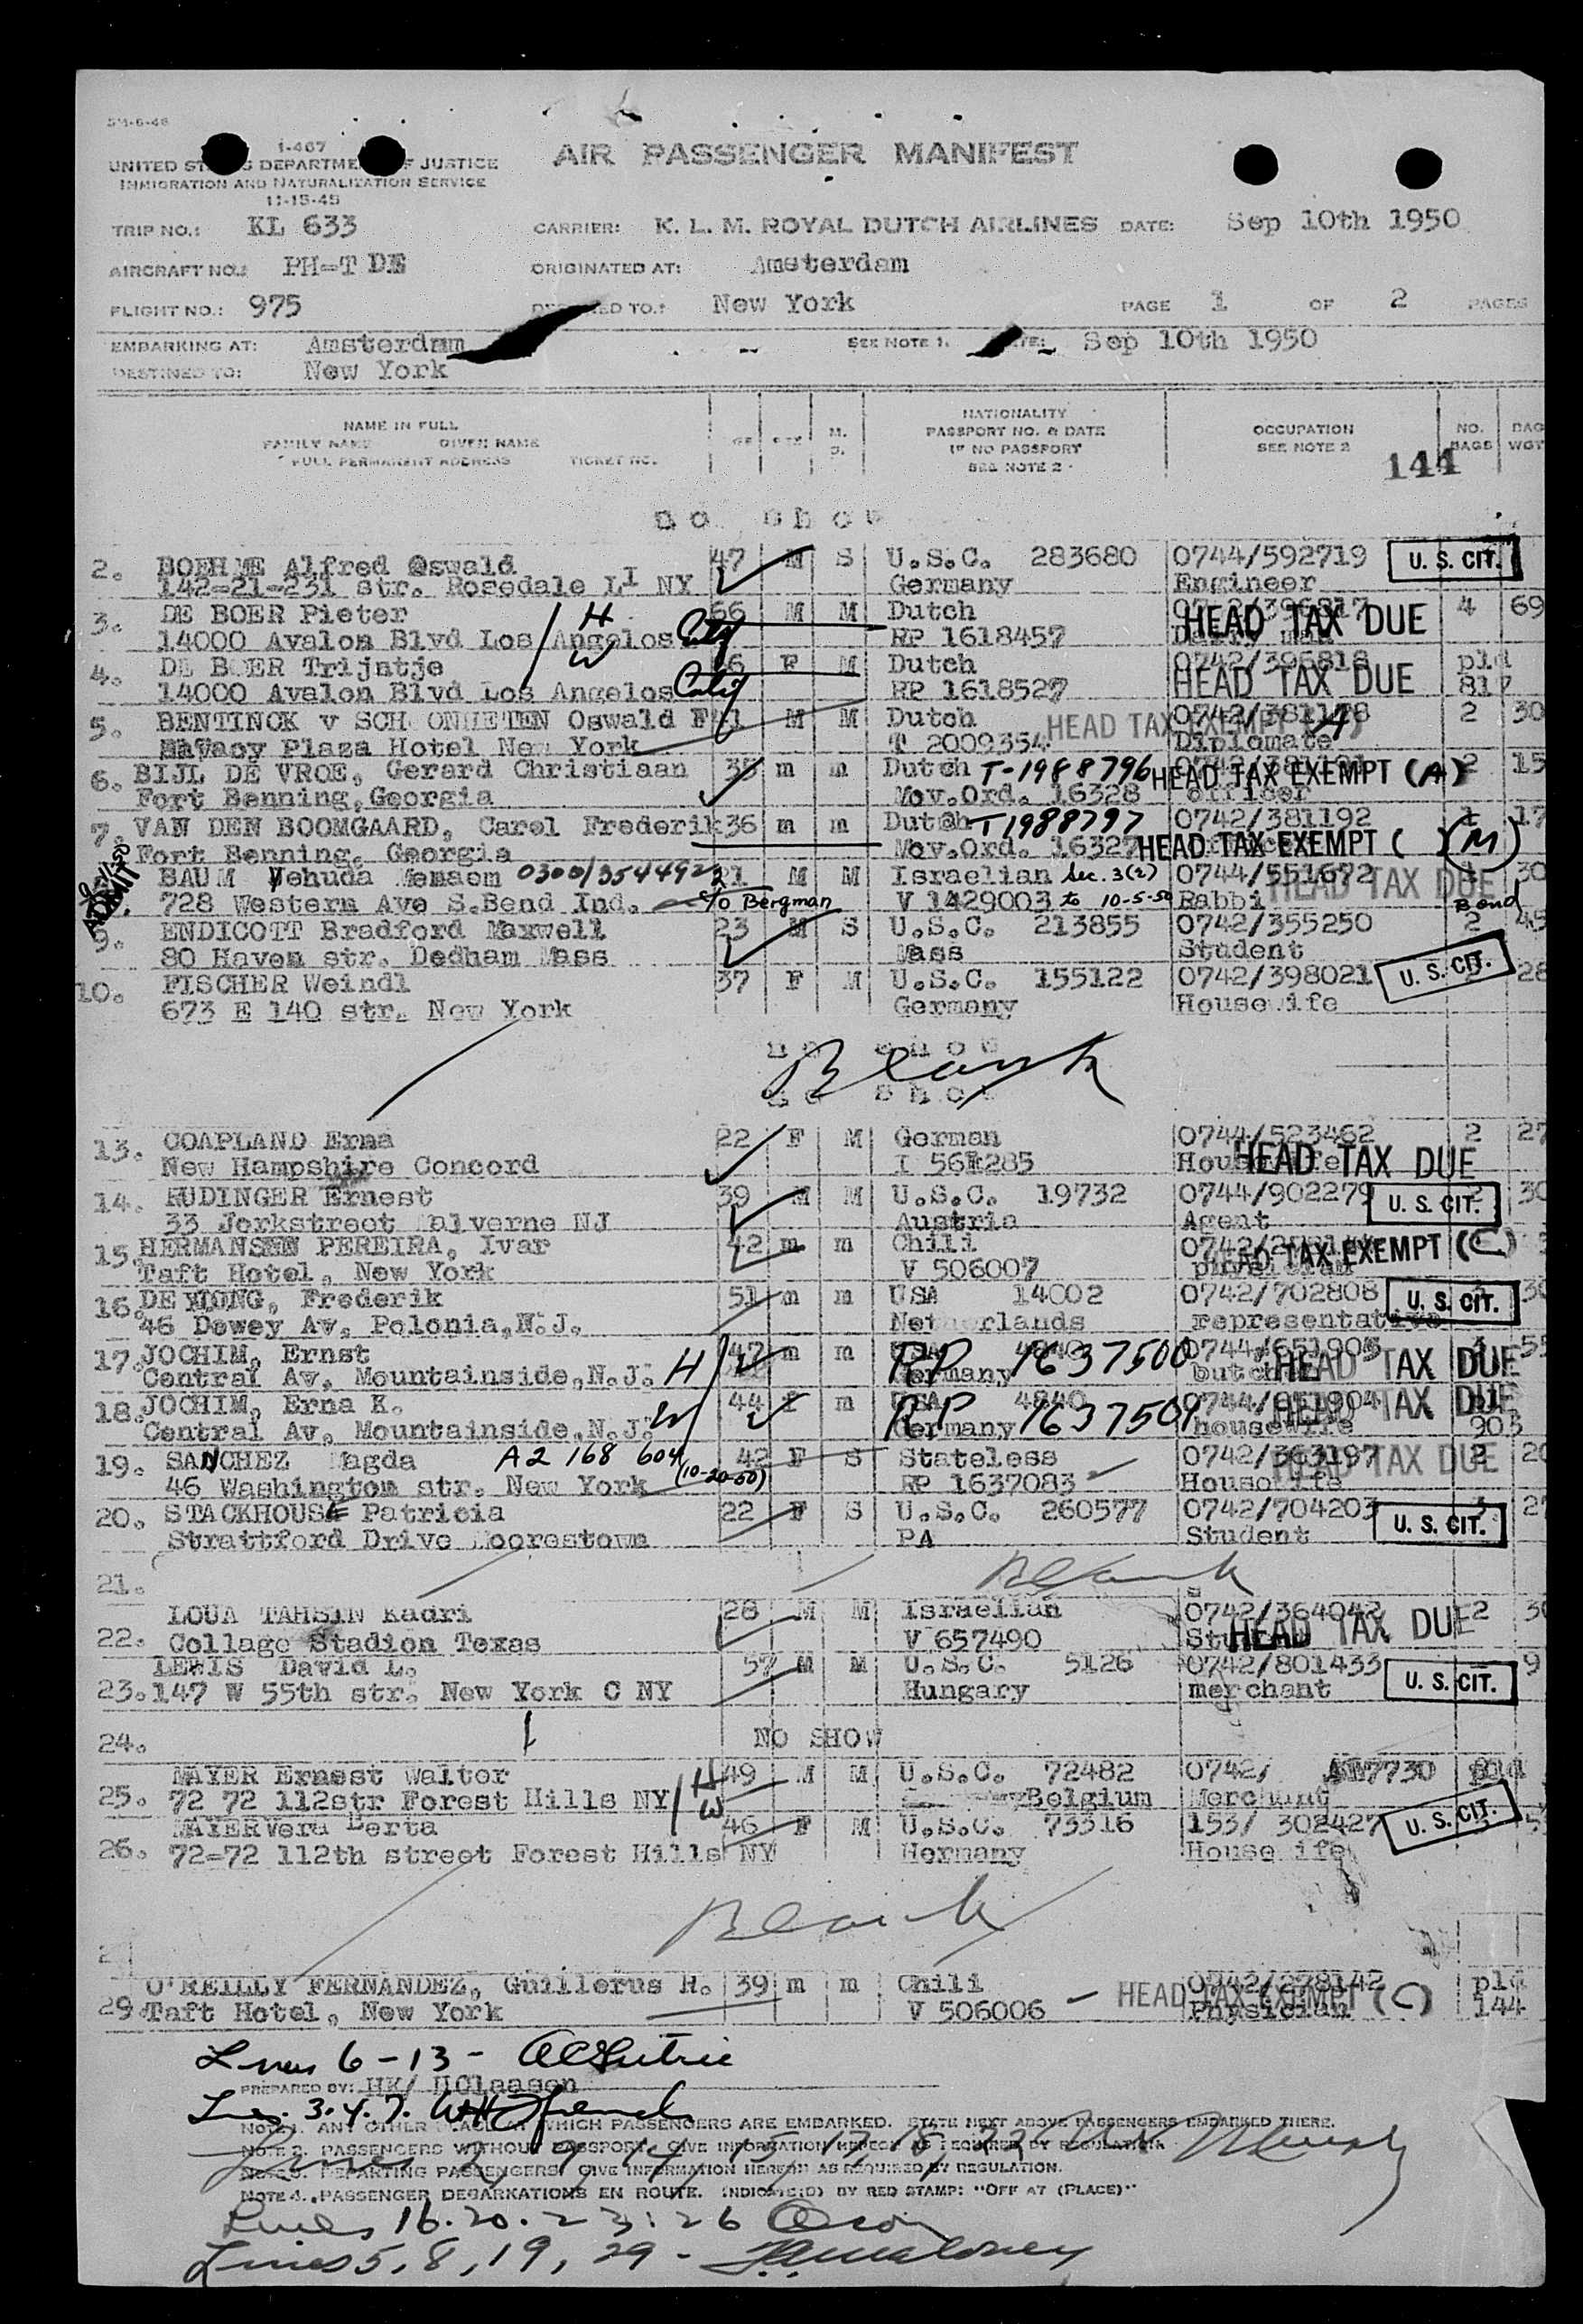 SM-6-46
I-467
UNITED ST S DEPARTME F JUSTICE
IMMIGRATION AND NATURALIZATION SERVICE
11-15-45
AIR PASSENGER MANIFEST
TRIP NO.: KL 633 CARRIER: K. L. M. ROYAL DUTCH AIRLINES DATE: Sep 10th 1950
AIRCRAFT NO.: PH-T DE ORIGINATED AT: Amsterdam
FLIGHT NO.: 975 ED TO.: New York PAGE 1 OF 2 PAGES
EMBARKING AT: Amsterdam SEE NOTE 1. Sep 10th 1950
DESTINED TO: New York
NAME IN FULL M. NATIONALITY OCCUPATION NO. BAG
FAMILY NAME GIVEN NAME PASSPORT NO. & DATE SEE NOTE 2 BAGS WGT
FULL PERMANENT ADDRESS TICKET NO. IF NO PASSPORT
SEE NOTE 2 144
no show
2. BOEHME Alfred Oswald 47 M S U.S.C. 283680 0744/592719 U. S. CIT.
142-21-231 str. Rosedale LI NY Germany Engineer
3. DE BOER Pieter H 66 M M Dutch HEAD TAX DUE 4 69
14000 Avalon Blvd Los Angelos Calif RP 1618457
4. DE BOER Trijntje W 66 F M Dutch 0742/396818 pld
14000 Avalon Blvd Los Angelos Calif RP 1618527 HEAD TAX DUE 817
5. BENTINCK v SCH ONHETEN Oswald F 41 M M Dutch 0742/381178 HEAD TAX EXEMPT (A) 2 30
Plaza Hotel New York T 2009354 Diplomate
6. BIJL DE VROE, Gerard Christiaan 35 m m Dutch T-1988796 HEAD TAX EXEMPT (A) 2 15
Fort Benning, Georgia Mov.Ord. 16328 officer
7. VAN DEN BOOMGAARD, Carel Frederik 36 m m Dutch T1988797 0742/381192 1 17
Fort Benning, Georgia Mov.Ord. 16327 HEAD TAX EXEMPT ( ) (M)
ADMIT BAUM Yehuda Menaem 0300/354492 21 M M Israelian Sec. 3(2) 0744/551672 HEAD TAX DUE 1 30
728 Western Ave S.Bend Ind. c/o Bergman V 1429003 to 10-5-50 Rabbi Bond
9. ENDICOTT Bradford Maxwell 23 M S U.S.C. 213855 0742/355250 2 45
80 Haven str. Dedham Mass Mass Student
10. FISCHER Weindl 37 F M U.S.C. 155122 0742/398021 U. S. CIT. 28
673 E 140 str. New York Germany Housewife
no show
Blank
no show
13. COAPLAND Erna 22 F M German 0744/523462 2 27
New Hampshire Concord HEAD TAX DUE
14. RUDINGER Ernest 39 M M U.S.C. 19732 0744/902279 U. S. CIT. 2 30
33 Jorkstreet Malverne NJ Austria Agent
15. HERMANSEN PEREIRA, Ivar 42 m m Chili HEAD TAX EXEMPT (C)
Taft Hotel, New York V 506007 physician
16. DE JONG, Frederik 51 m m USA 14002 0742/702808 U. S. CIT. 30
46 Dewey Av, Polonia, N.J. Netherlands representative
17. JOCHIM, Ernst 47 m m RP 1637500 0744/651903 3 55
Central Av, Mountainside, N.J. H Germany HEAD TAX DUE
18. JOCHIM, Erna K. 44 f m USA 4840 RP 1637501 0744/651904 HEAD TAX DUE
Central Av, Mountainside, N.J. W Germany housewife 903
19. SANCHEZ Magda A2 168 604 42 F S Stateless 0742/363197 HEAD TAX DUE 2 20
46 Washington str. New York (10-20-50) RP 1637083 Housewife
20. STACKHOUSE Patricia 22 F S U.S.C. 260577 0742/704203 U. S. CIT. 3 27
Strattford Drive Moorestown PA Student
21. Blank
LOUA TAHSIN Kadri 28 M M Israelian 0742/364042 2 30
22. Collage Stadion Texas V 657490 HEAD TAX DUE
LEWIS David L. 57 M M U.S.C. 5126 0742/801433 9
23. 147 W 55th str. New York C NY Hungary merchant U. S. CIT.
24. NO SHOW
MAYER Ernest Walter H 49 M M U.S.C. 72482 0742/
25. 72 72 112str Forest Hills NY W Belgium Merchant
MAYER Vera Berta 46 F M U.S.C. 73316 153/ 302427 U. S. CIT.
26. 72-72 112th street Forest Hills NY Hermany House ife
Blank
O'REILLY FERNANDEZ, Guillerus H. 39 m m Chili 0742/278142 pld
29. Taft Hotel, New York V 506006 HEAD TAX EXEMPT (C) Physician 144
Lines 6-13-
PREPARED BY: HK/ HClaasen
3.4.7.
NOTE 1. ANY OTHER PLACE AT WHICH PASSENGERS ARE EMBARKED. STATE NEXT ABOVE PASSENGERS EMBARKED THERE.
NOTE 2. PASSENGERS WITHOUT PASSPORT, GIVE INFORMATION HEREON AS REQUIRED BY REGULATION.
Lines 2, 9, 14, 15, 17, 18, 22
NOTE 3. DEPARTING PASSENGERS GIVE INFORMATION HEREON AS REQUIRED BY REGULATION.
NOTE 4. PASSENGER DEBARKATIONS EN ROUTE. INDICATE(D) BY RED STAMP: "OFF AT (PLACE)"
Lines 16.20.23.26
Lines 5, 8, 19, 29 -